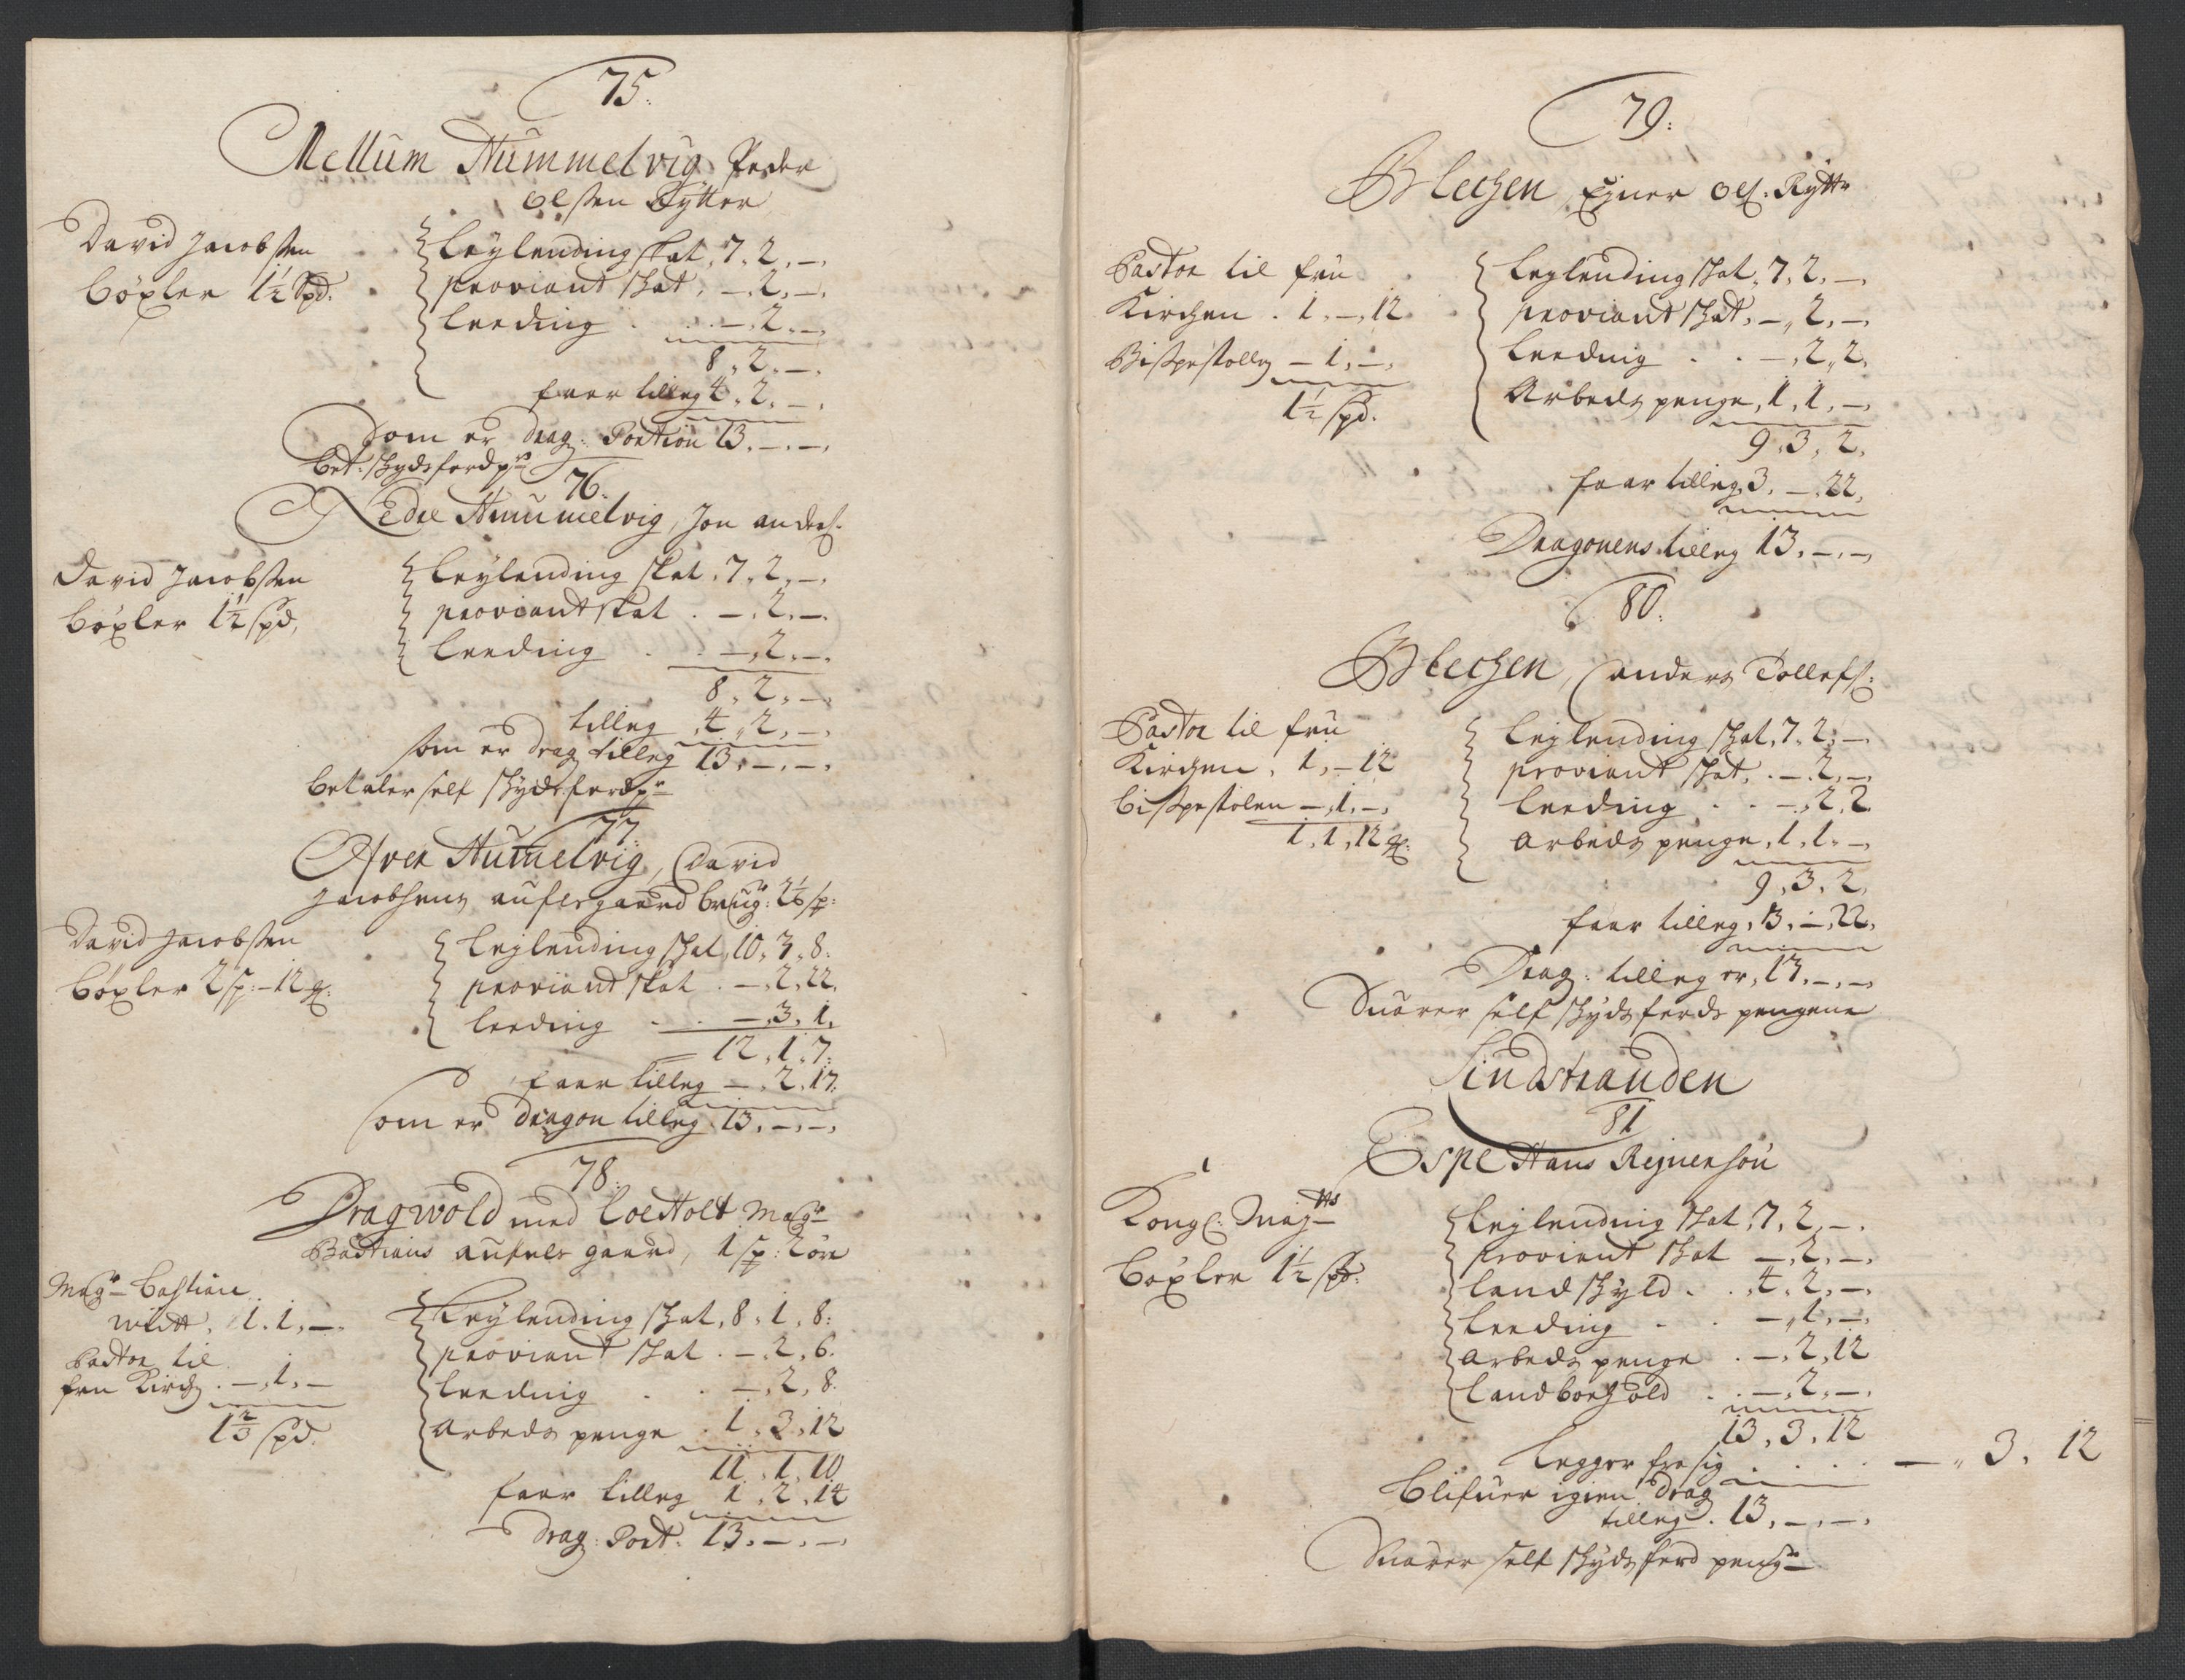 75.
Mellum Hummelvig Peder
Olssen Rytter
David Jacobssen
böxler 1½ Spd.
Leylending skat, 7, 2, –,
proviant skat, –, 2, –,
Leeding . . –, 2, –,
8, 2, –,
faar tilleg 4, 2, –,
Som er Drag: Portion 13, –, –,
bet: skydsferd
76.
Nedre Hummelvig, Jon anders:
David Jacobssen
böxler 1½ spd,
Leylending skat, 7, 2, –,
proviant skat . –, 2, –,
Leeding . . –, 2, –,
8, 2, –,
tilleg 4, 2, –,
som er drag tilleg 13, –, –,
betaler self skydsferd
77.
Øver Hummelvig, David
Jacobsens aufelsgaard brug:
David Jacobssen
böxler 2 sp: – 12
Leylending skat, 10, 3, 8:
proviant skat . –, 2, 22,
Leeding . . –, 3, 1,
12, 1, 7:
faar tilleg –, 2, 17:
som er dragon tilleg 13, –, –,
78.
Dragwold med Loeholt Magr
Bastians aufels gaard, 1 sp: 2 öre
Magr Bastian
widtt, 1, 1, –,
Pastor til
fru Kirch . –, 1, –
1⅔ spd.
Leylending skat, 8, 1, 8:
proviant skat . –, 2, 6.
Leeding . . –, 2, 8.
arbeds penge . 1, 3, 12
11, 1, 10
faar tilleg 1, 2, 14
Drag: Port: 13, –, –,
79.
Blechen, Ejner Ols: Rytter
Pastor til fru
Kirchen . 1, –, 12
Bispestollen – 1, –,
1½ spd.
Leylending skat, 7, 2, –,
proviant skat, –, 2, –,
Leeding . . –, 2, 2,
Arbeds penge, 1, 1, –,
9, 3, 2,
faar tilleg, 3, –, 22,
Dragonens tilleg 13, –, –,
80.
Blechen, anders Tollefs:
Pastor til fru
Kirchen, 1, – 12
bispestolen –, 1, –,
1, 1, 12
Leylending skat, 7, 2, –,
proviant skat, . –, 2, –,
Leeding . . –, 2, 2
arbeds penge, 1, 1, –,
9, 3, 2,
faar tilleg, 3, –, 22,
Drag: tilleg er, 13, –, –,
Suarer self skyds ferds pengene
Lindstranden
81
Espe Hans Rejnersøn
Kongl: Maytts
böxler 1½ spd:
Leylending skat, 7, 2, –,
proviant skat –, 2, –,
landskyld . . 4, 2, –,
Leeding . . –, 1, –,
arbeds penge . –, 2, 12
landboehold . . –, 2, –,
13, 3, 12
legger fra sig . . . . –, 3, 12
blifuer igien drag
tilleg . 13, –, –,
Suarer self skyds ferd penge